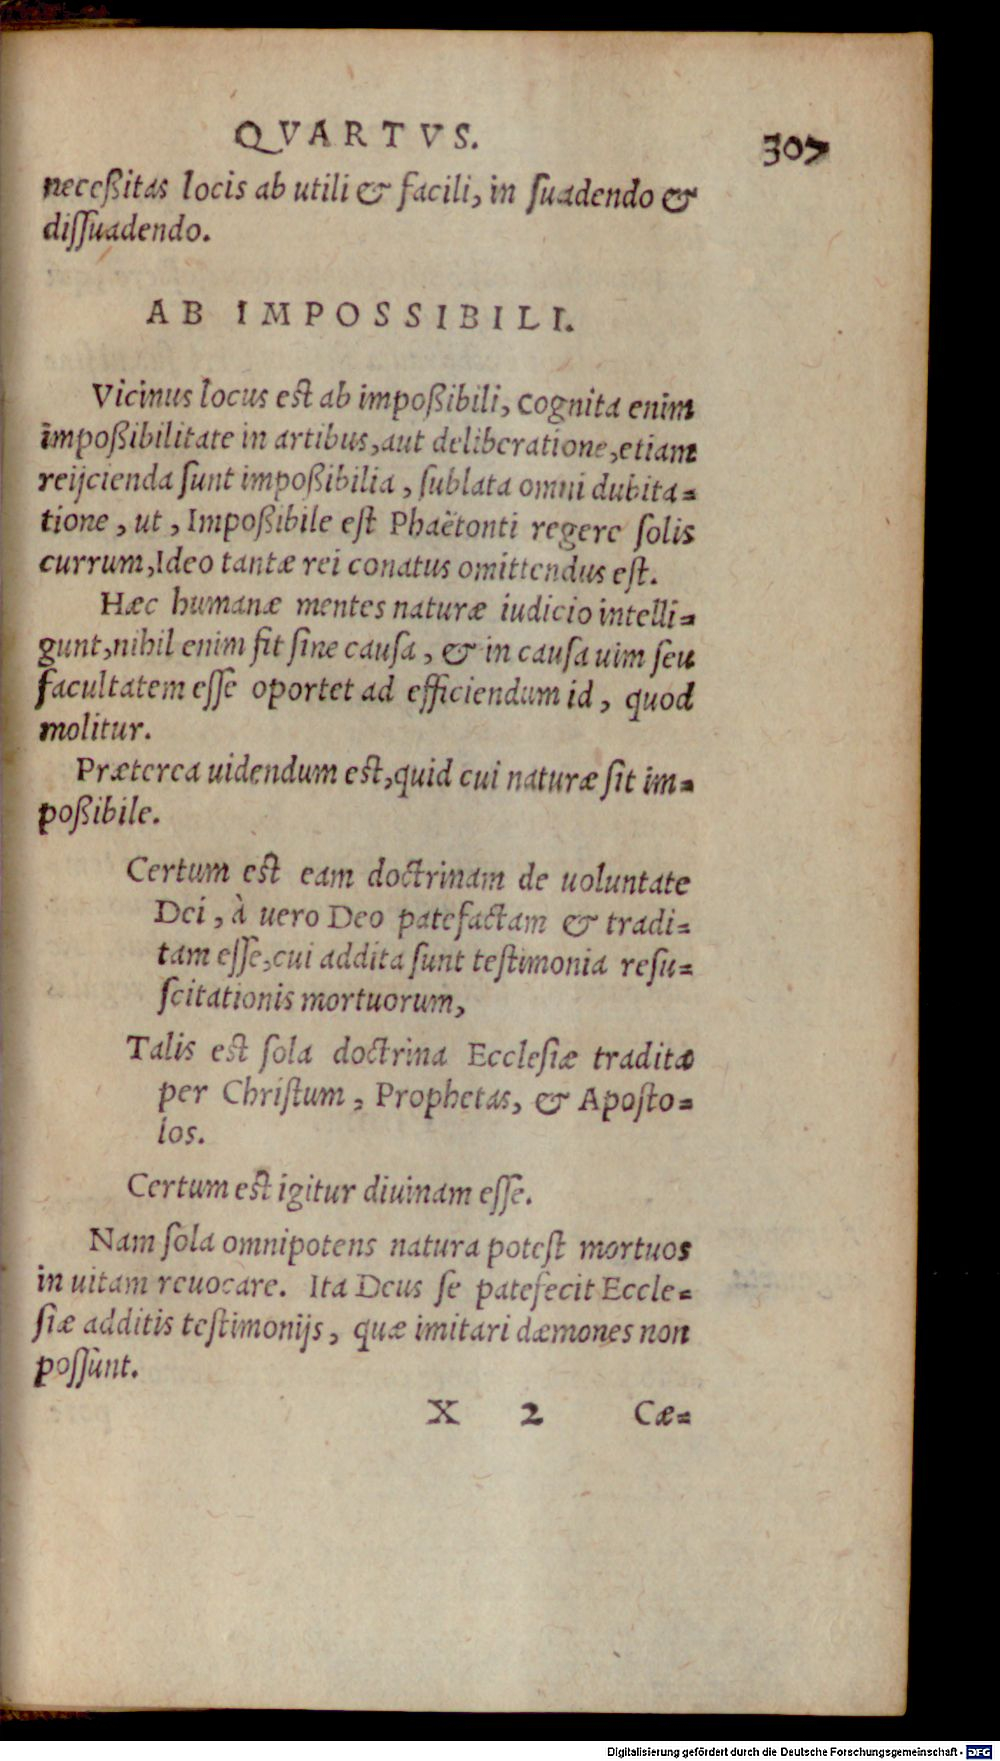 QVARTVS. 307
neceßitas locis ab utili & facili, in ſuadendo &
diſſuadendo.
AB IMPOSSIBILI.
Vicinus locus est ab impoßibili, cognita enim
impoßibilitate in artibus, aut deliberatione, etiam
reijcienda ſunt impoßibilia, ſublata omni dubita=
tione, ut, Impoßibile eſt Phaëtonti regere ſolis
currum, Ideo tantæ rei conatus omittendus eſt.
Hæc humanæ mentes naturæ iudicio intelli=
gunt, nihil enim fit ſine cauſa, & in cauſa uim ſeu
facultatem eſſe oportet ad efficiendum id, quod
molitur.
Præterea uidendum est, quid cui naturæ ſit im=
poßibile.
Certum est eam doctrinam de uoluntate
Dei, à uero Deo patefactam & tradi=
tam eſſe, cui addita ſunt teſtimonia reſu=
ſcitationis mortuorum,
Talis est ſola doctrina Eccleſiæ traditæ
per Chriſtum, Prophetas, & Apoſto=
los.
Certum est igitur diuinam eſſe.
Nam ſola omnipotens natura poteſt mortuos
in uitam reuocare. Ita Deus ſe patefecit Eccle=
ſiæ additis teſtimonijs, quæ imitari dæmones non
poſſunt.
X 2 Cæ=
Digitalisierung gefördert durch die Deutsche Forschungsgemeinschaft - DFG